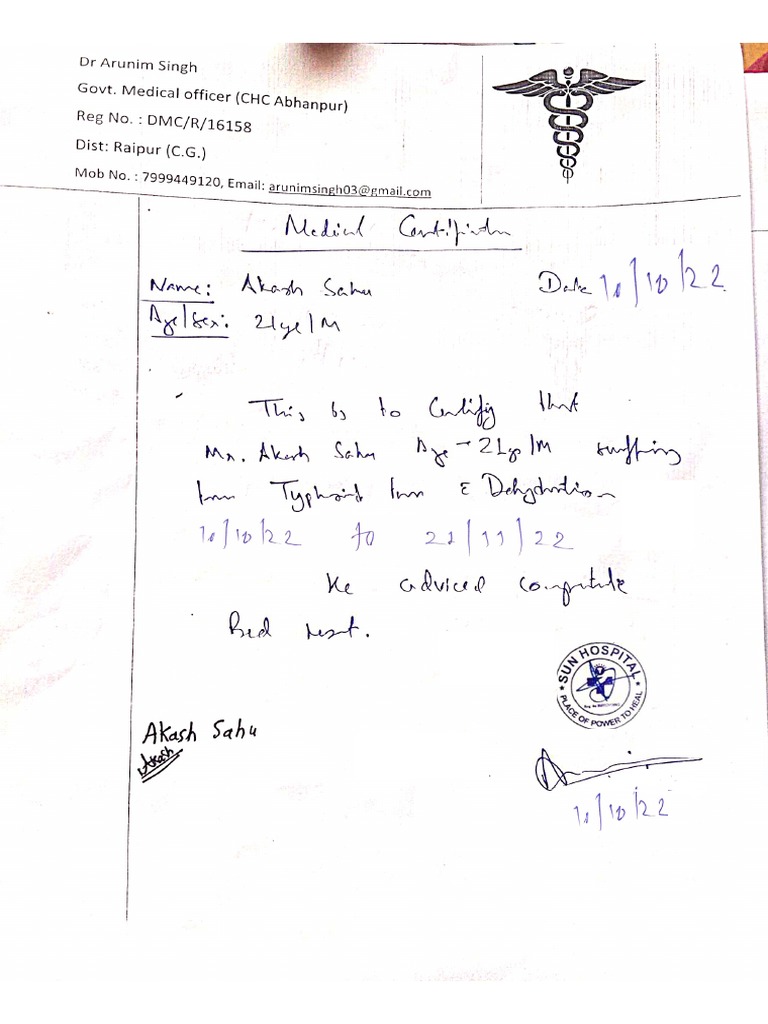 Dr Arunim Singh
Govt. Medical officer (CHC Abhanpur)
Reg No. : DMC/R/16158
Dist: Raipur (C.G.)
Mob No. : 7999449120, Email: arunimsingh03@gmail.com
Medical
Name: Akash Sahu Date 10/10/22
Age/Sex: 21yr/M
This is to Certify that
Mr. Akash Sahu Age - 21yr/M suffring
Typhoid & Dehydration
10/10/22 to 21/11/22
He adviced
Bed rest.
SUN HOSPITAL
PLACE OF POWER TO HEAL
Akash Sahu
Akash
10/10/22